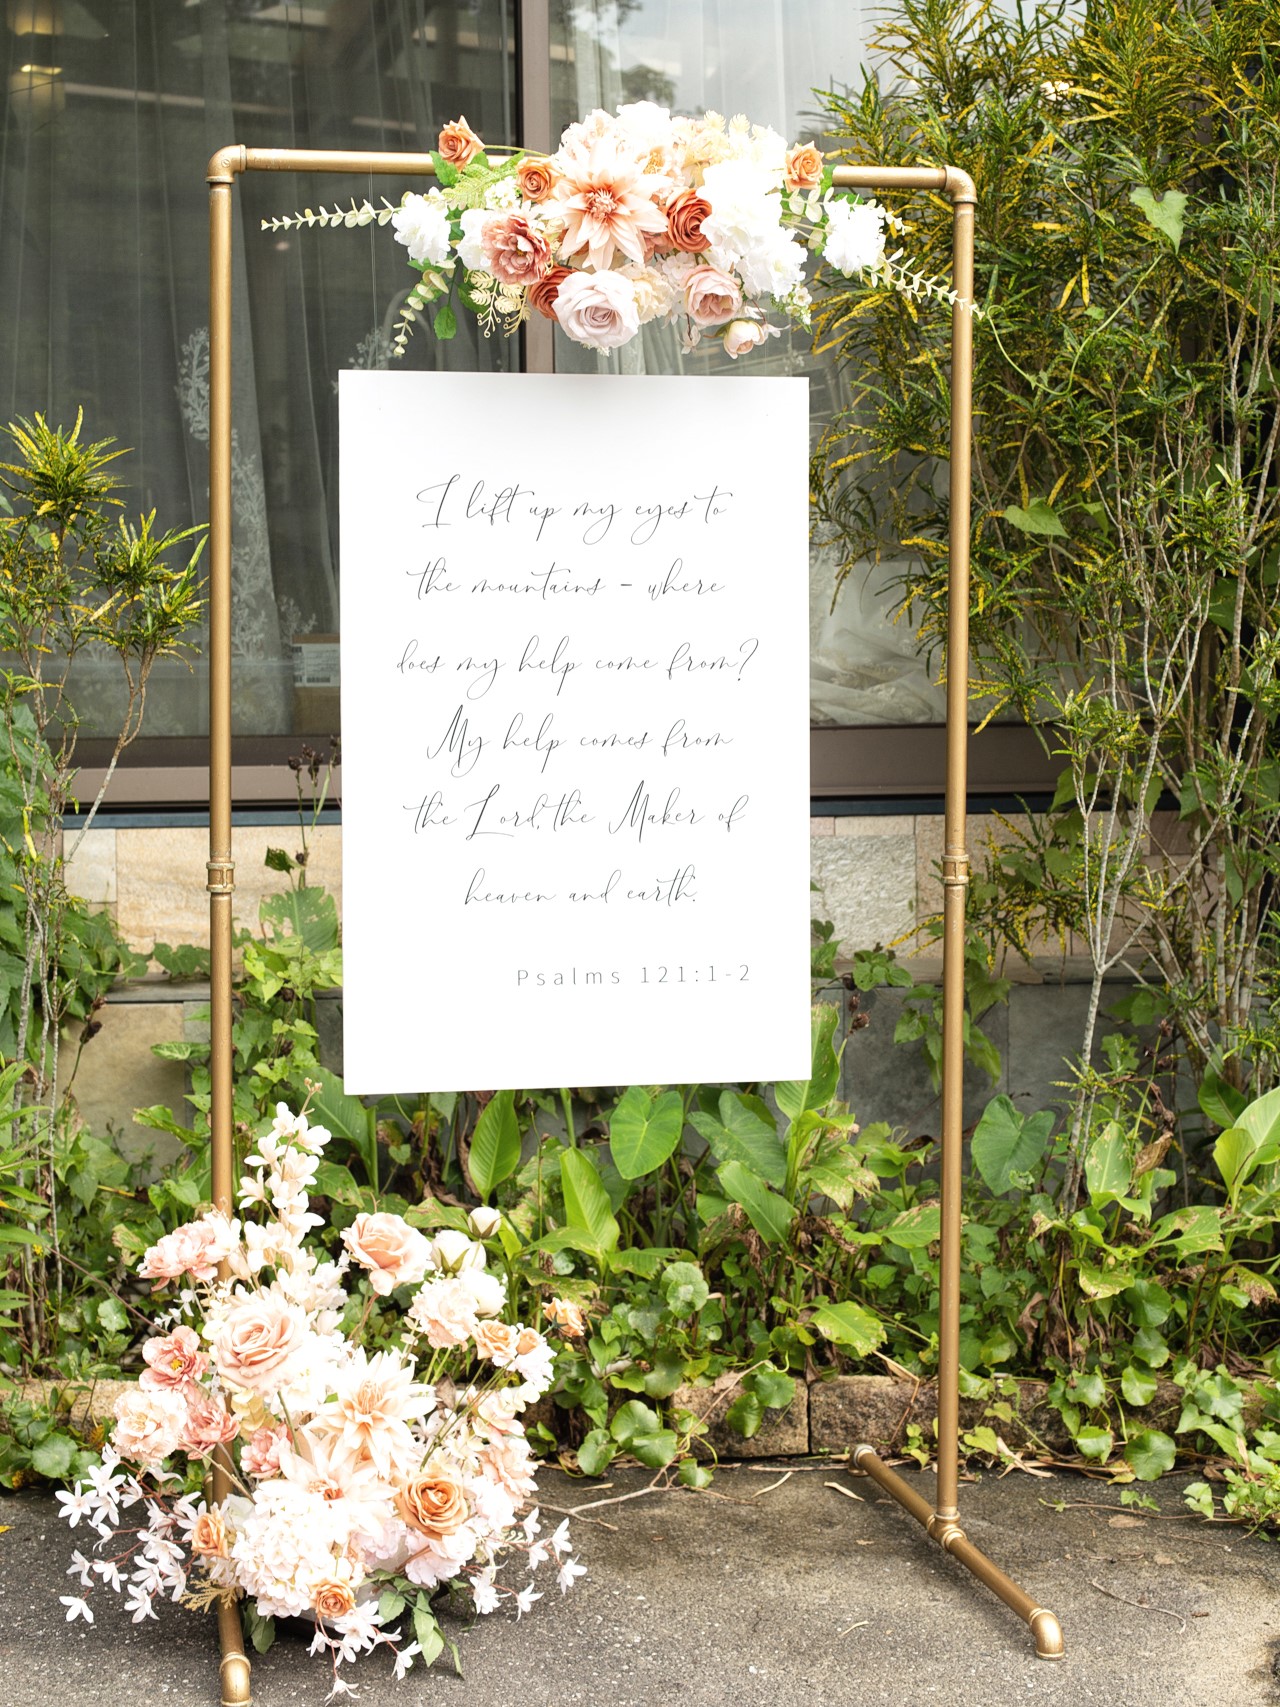 I lift up my eyes to
the mountains - where
does my help come from?
My help comes from
the Lord, the Maker of
heaven and earth.
Psalms 121:1-2